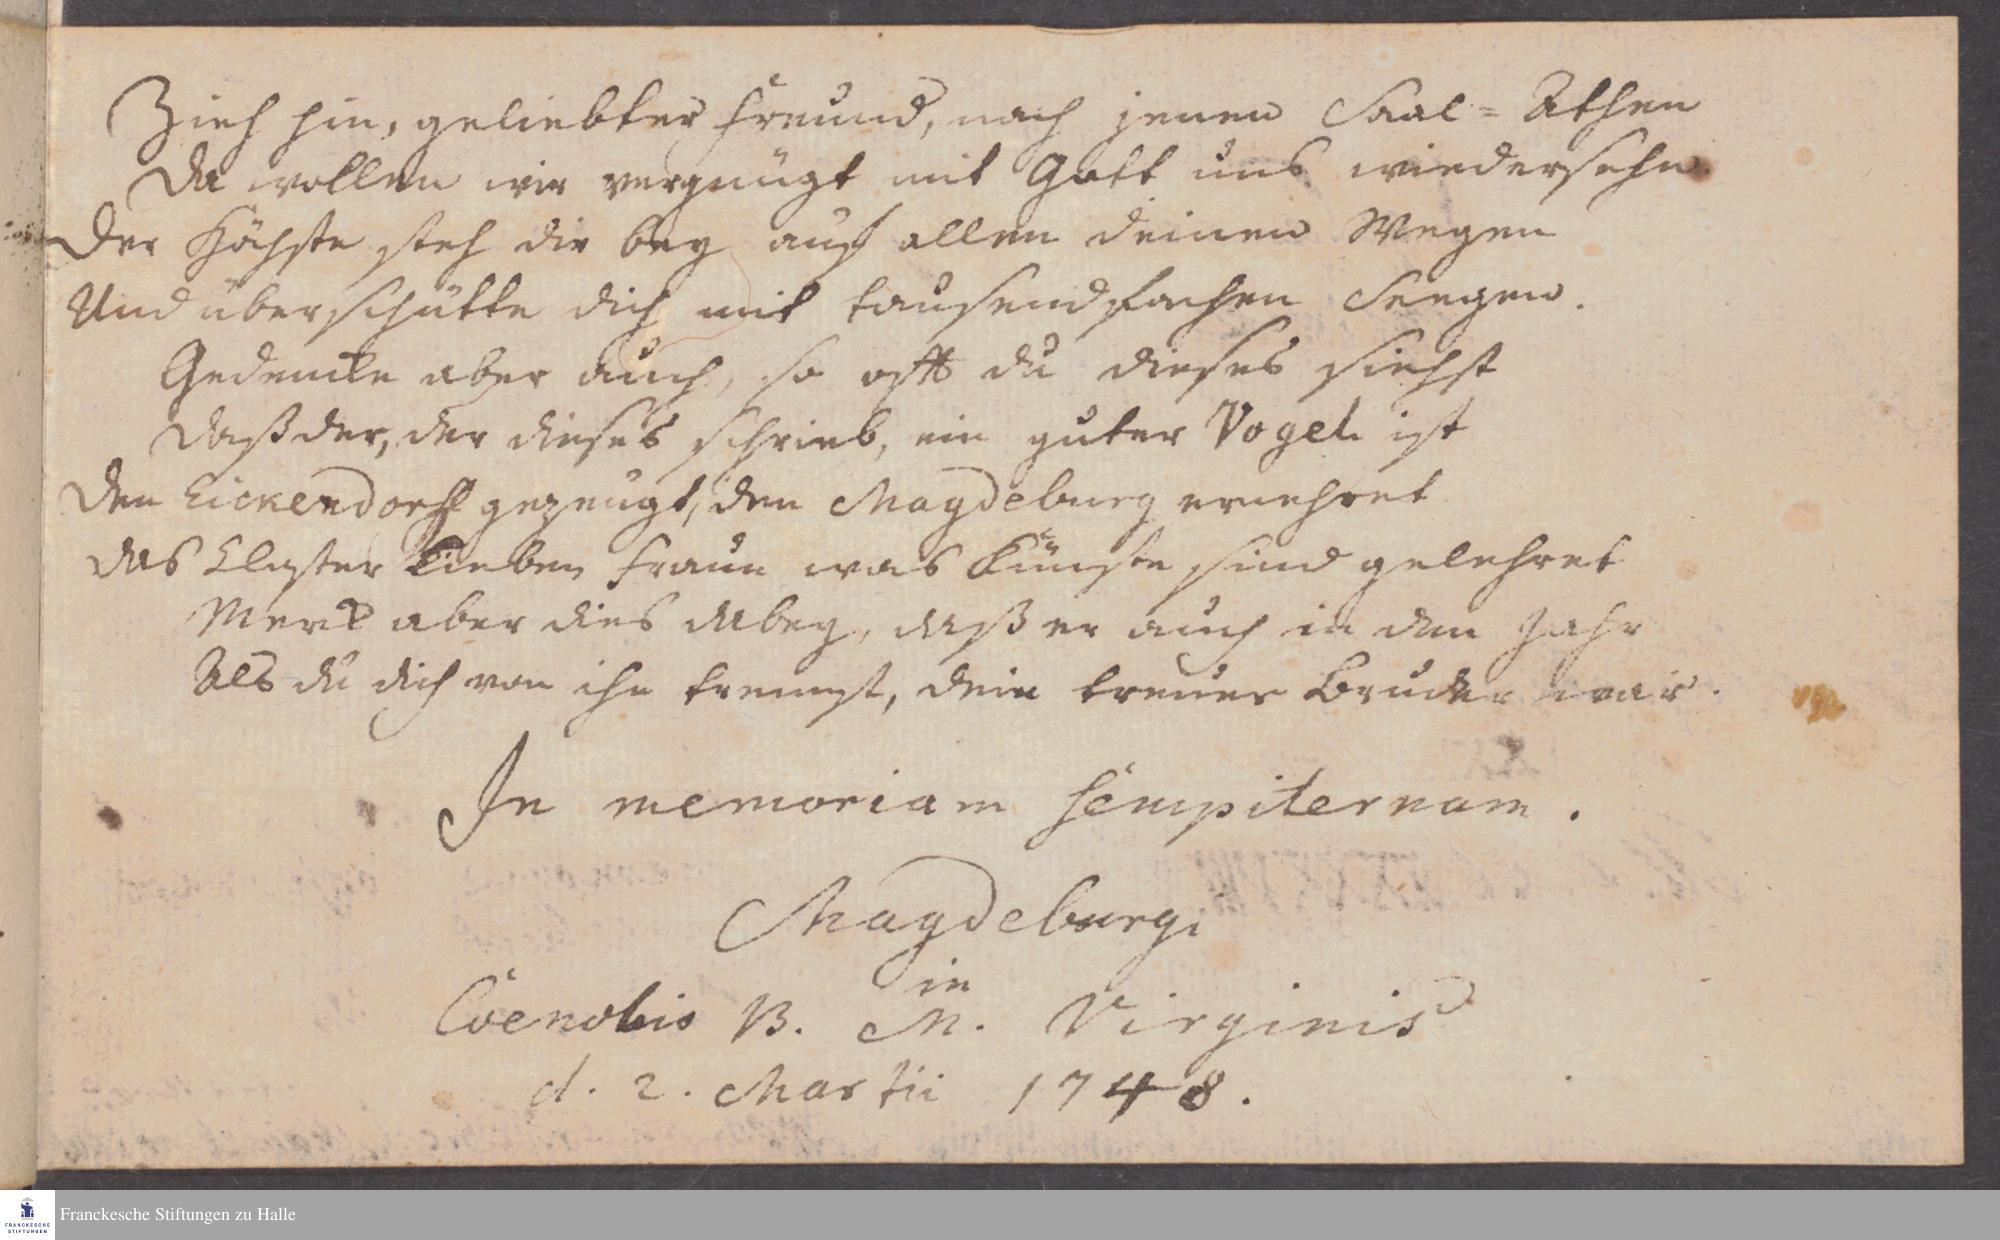 Zieh hin, geliebter Freund, nach jenen Saal=Athen
Da wollen wir vergnügt mit Gott uns wiedersehn
Der Höchste steh dir bey auf allen deinen Wegen
Und überschütte dich mit tausendfachen Seegen.
Gedencke aber auch, so offt du dieses siehst
Daß der, der dieses schrieb, ein guter Vogel ist
Den Eickendorff gezeugt, den Magdeburg ernehret
Das Closter Lieben Fraun was Künste sind gelehret
Merck aber dies dabey, daß er auch in dem Jahr
Als du dich von ihn trennst, dein treuer Bruder war.
In memoriam sempiternam.
Magdeburgi
in
Coenobio B. M. Virginis
d. 2. Martii 1748.
Franckesche Stiftungen zu Halle
FRANCKESCHE
STIFTUNGEN